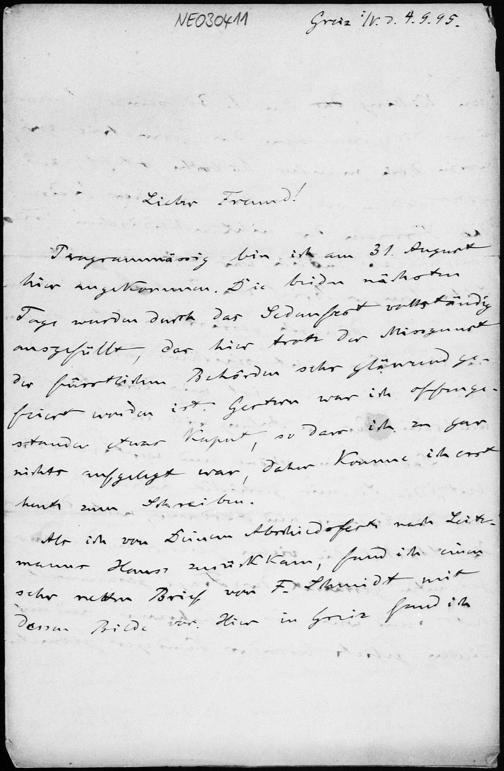 NE030411
Greiz i/V. d. 4.9.95.
Lieber Freund!
Programmässig bin ich am 31. August
hier angekommen. Die beiden nächsten
Tage wurden durch das Sedanfest vollständig
ausgefüllt, das hier trotz der Missgunst
der fürstlichen Behörden sehr glänzend ge-
feiert worden ist. Gestern war ich offenge-
standen etwas kaput, so dass ich zu gar
nichts aufgelegt war, daher komme ich erst
heute zum Schreiben.
Als ich von Deinem Abschiedsfeste nach Leitz-
manns Hause zurückkam, fand ich einen
sehr netten Brief von F. Schmidt mit
dessen Bilde vor. Hier in Greiz fand ich